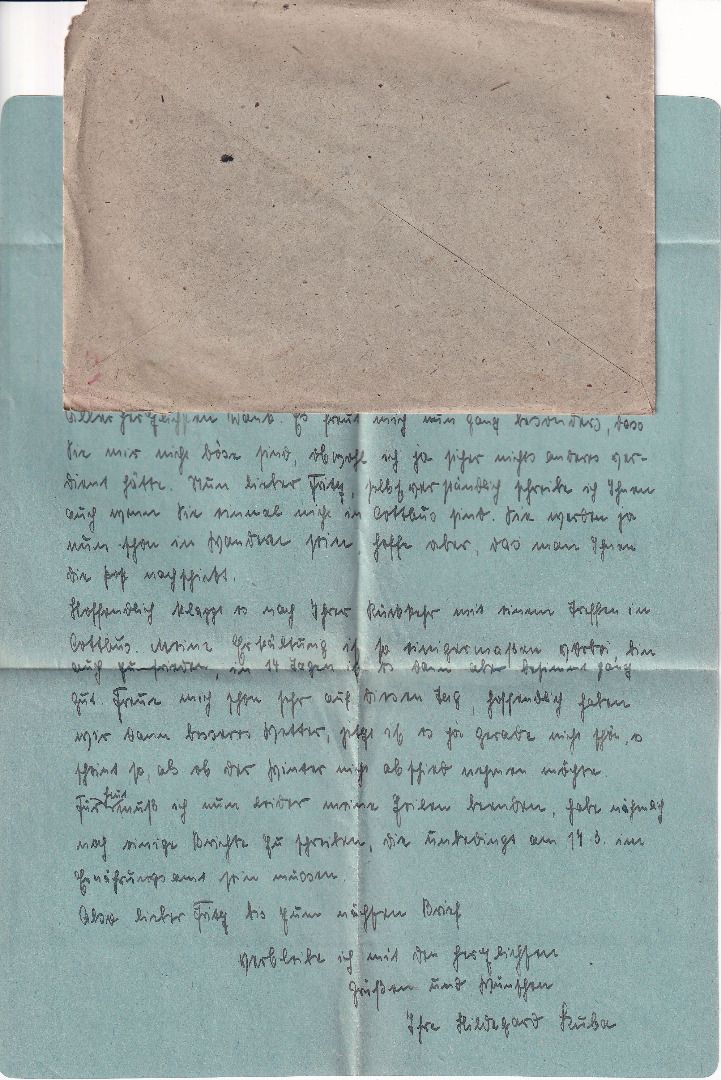 allerherzlichsten Dank. Es freut mich nun ganz besonders, dass
Sie mir nicht böse sind, obwohl ich ja sicher nichts anderes ver-
dient hätte. Nun lieber Fritz, selbstverständlich schreibe ich Ihnen
auch wenn Sie einmal nicht in Cottbus sind. Sie werden ja
nun schon in Wandern sein, hoffe aber, das man Ihnen
die Post nachschickt.
Hoffendlich klappt es nach Ihrer Rückkehr mit einem Treffen in
Cottbus. Meine Erkältung ist so einigermaßen vorbei bin
auch zufrieden, in 14 Tagen ist es dann aber bestimmt ganz
gut. Freue mich schon sehr auf diesen Tag, hoffendlich haben
wir dann besseres Wetter, jetzt ist es ja gerade nicht schön, es
scheint so, als ob der Winter nicht abschied nehmen möchte.
Für heut muß ich nun leider meine Zeilen beenden, habe nähmlich
noch einige Berichte zu schreiben, die unbedingt am 14 3. im
Ernährungsamt sein müssen.
Also lieber Fritz bis zum nächsten Brief
verbleibe ich mit den herzlichsten
Grüßen und Wünschen
Ihre Hildegard Kuba